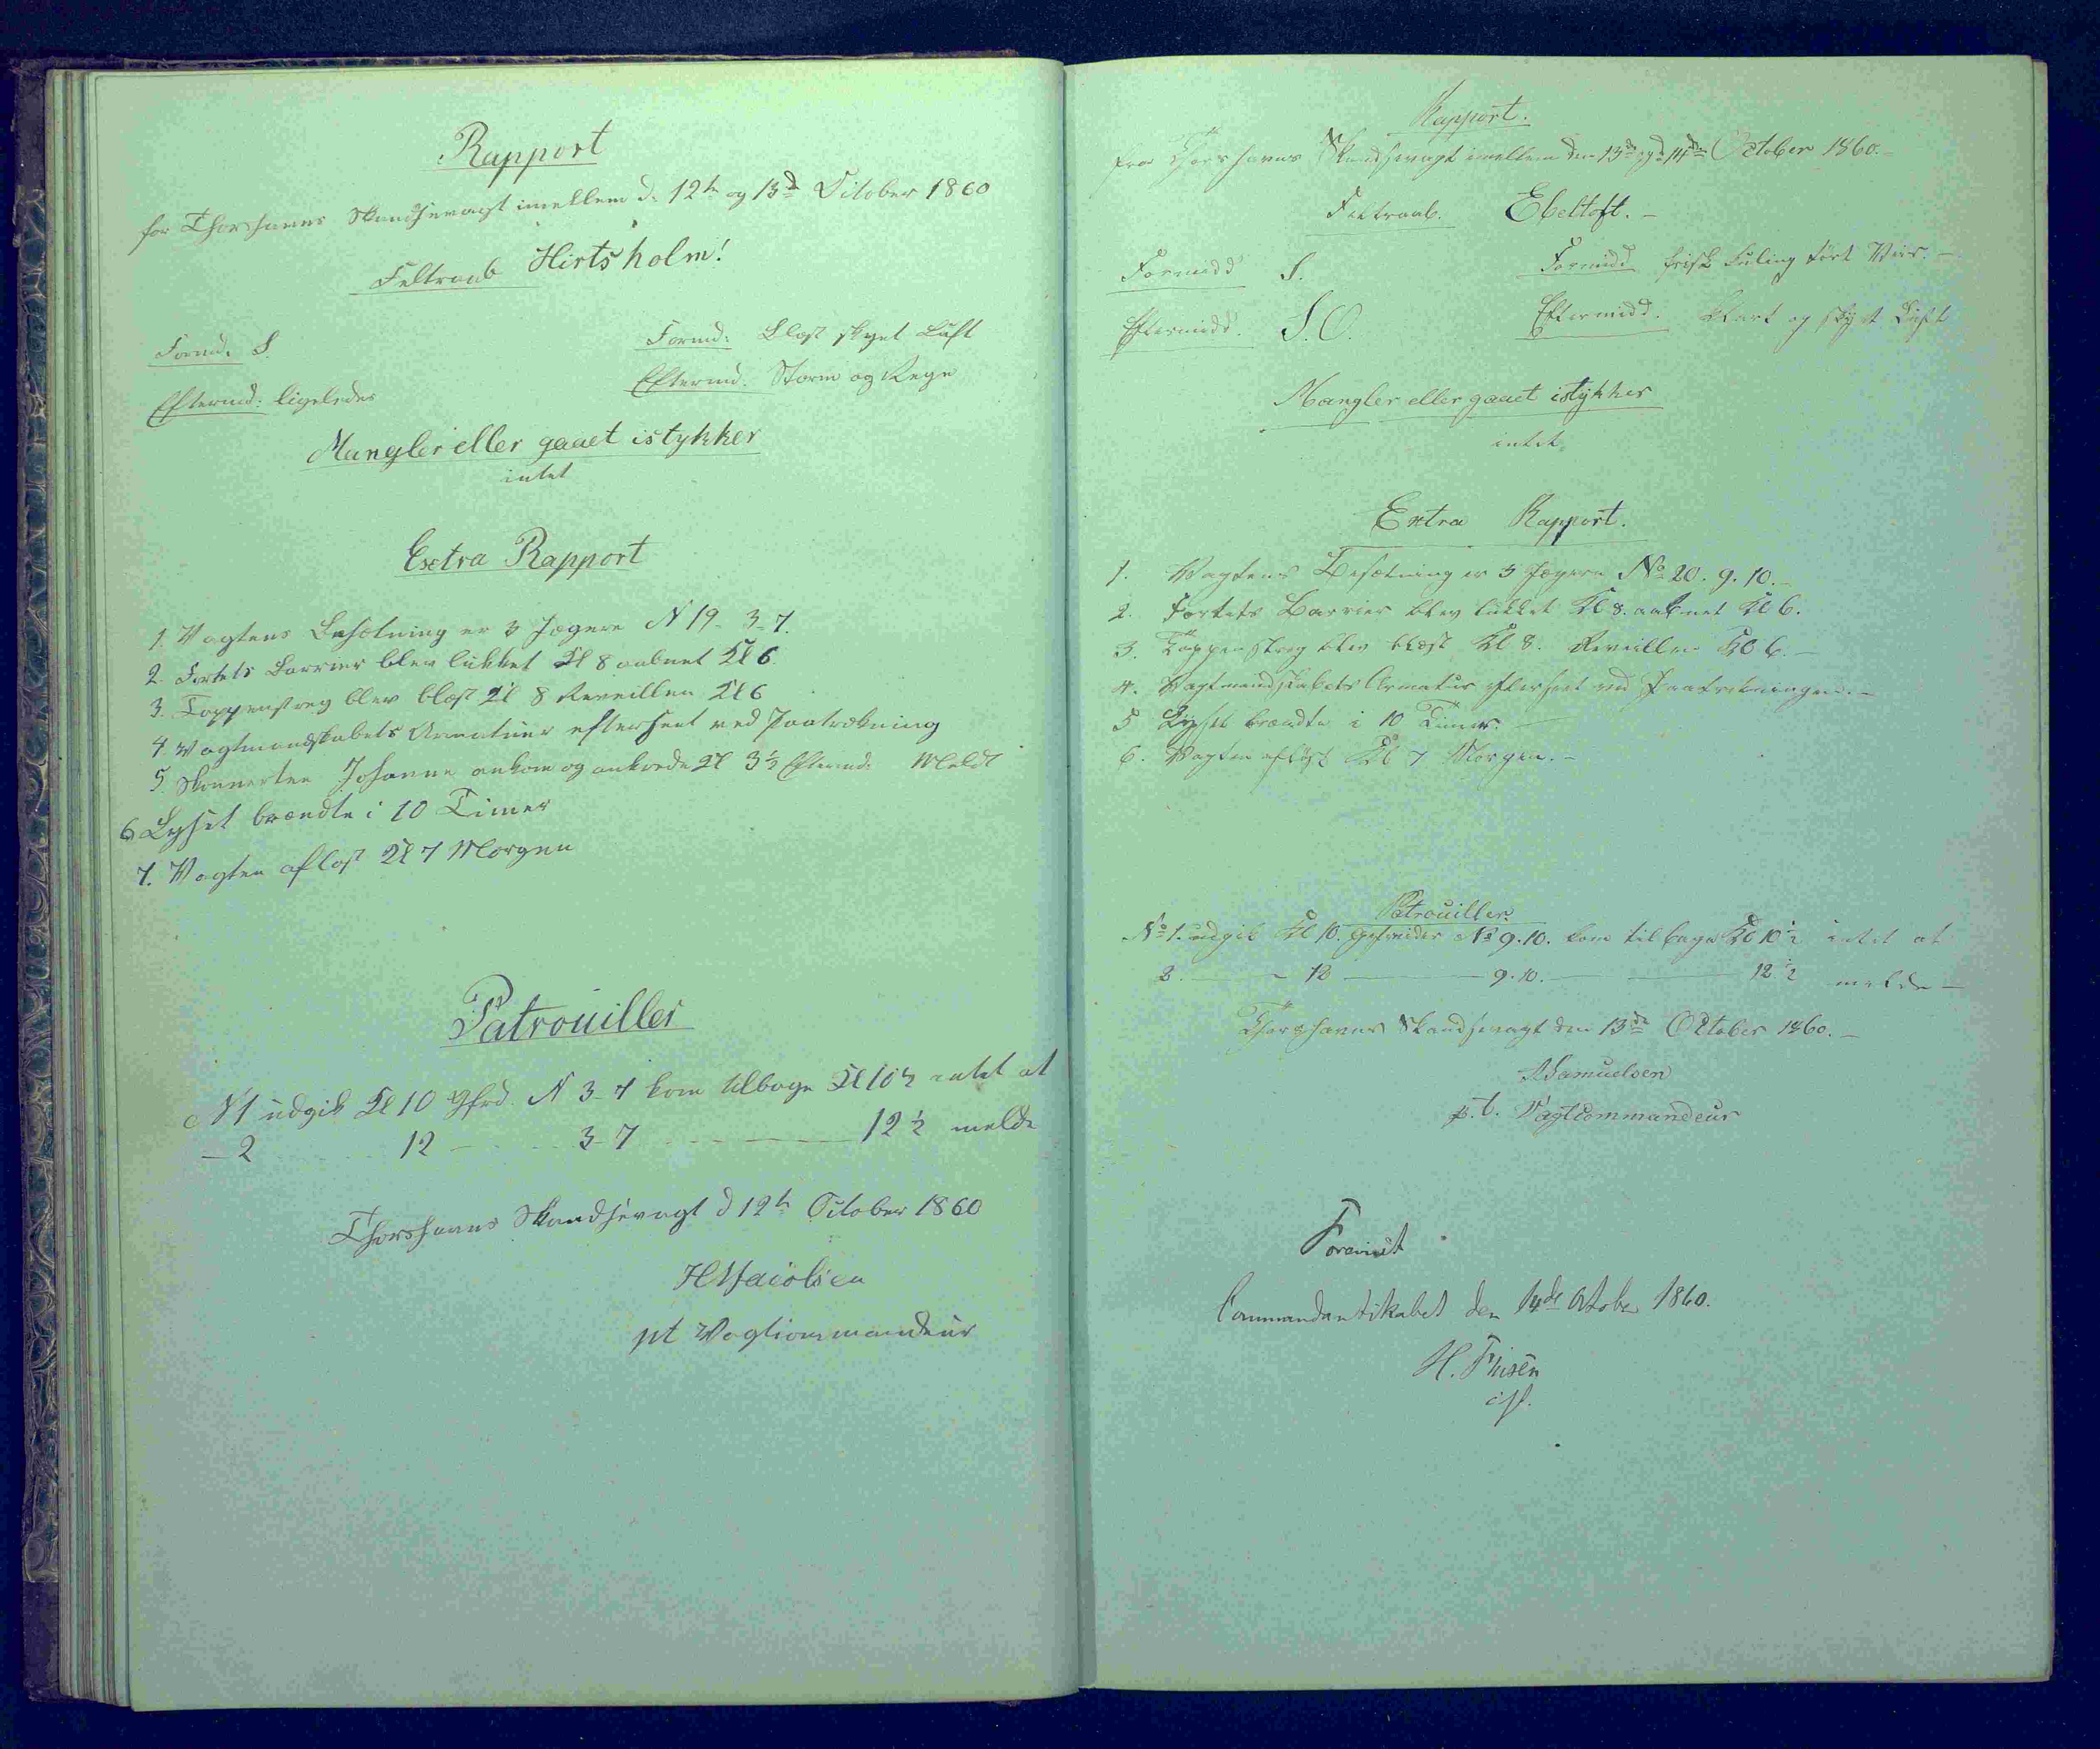 Rapport
for Thorshavns Skandsevagt imellem d. 12te og 13de October 1860
Feltraab Hirtsholm!
Formd. S. Formd: Blæst skyet Luft
Eftermd: ligeledes Eftermd. Storm og Regn
Mangler eller gaaet istykker
intet
Extra Rapport
1. Vagtens Besætning er 3 Jægere N 19- 3-7.
2. Fortets Barrier blev lukket Kl 8 aabnet Kl 6
3. Tappenstreg blev blæst Kl 8 Reveillen Kl 6
4. Vagtmandskabets Armatuer efterseet ved Paatrækning
5. Skonnerten Johanne ankom og ankrede Kl 3½ Eftermd. Meldt
6 Lyset brændte i 10 Timer
7. Vagten afløst Kl 7 Morgen
Patrouiller
N 1 udgik Kl 10 Gfrd. N 3-7 kom tilbage Kl 10½ intet at
— 2 12 3-7 12½ melde
Thorshavns Skandsevagt d 12te October 1860
H Jacobsen
pt Vagtcommandeur
Rapport.
fra Thorshavns Skandsevagt imellem den 13de og 14de October 1860.—
Feltraab. Ebeltoft.—
Formidd S. Formidd frisk Kuling tørt Veir.—
Eftermidd. S.O. Eftermidd. klart og skyet Luft
Mangler eller gaaet istykker
intet.
Extra Rapport.
1. Vagtens Besætning er 3 Jægere No 20. 9. 10.—
2. Fortets Barrier blev lukket Kl 8. aabnet Kl 6.
3. Tappenstreg blev blæst Kl 8. Reveillen Kl 6.—
4. Vagtmandskabets Armatur efterseet ved Paatrækningen.—
5 Lyset brændte i 10 Timer.
6. Vagten afløst Kl 7 Morgen.—
Patrouiller.
No 1. udgik Kl 10. Gefreider No 9.10. kom tilbage Kl 10½ intet at
2. — 12 — 9.10. — 12½ melde—
Thorshavns Skandsevagt den 13de October 1860.—
Samuelsen
p.t. Vagtcommandeur
Foreviist
Commandantskabet den 14de October 1860.